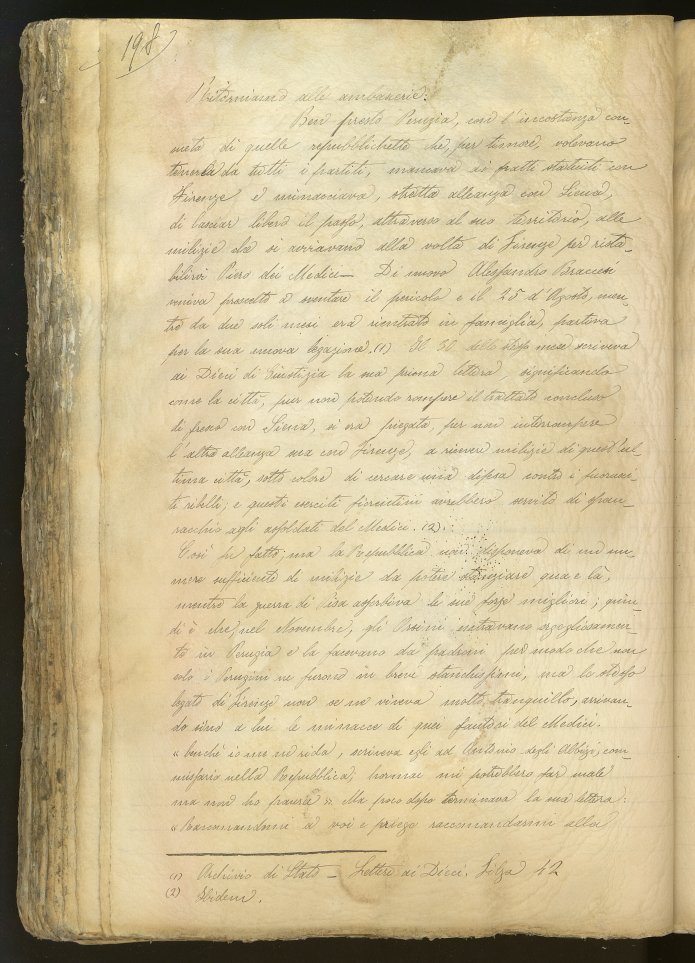 198
Ritorniamo alle ambascerie.
Ben presto Perugia, con l'incostanza con-
sueta di quelle repubblichette che, per timore, volevano
tenersela da tutti i partiti, mancava ai patti statuiti con
Firenze e minacciava, stretta alleanza con Siena,
di lasciar libero il passo, attraverso al suo territorio, alle
milizie che si avviavano alla volta di Firenze per rista-
bilirvi Piero dei Medici — Di nuovo Alessandro Braccesi
veniva prescelto a sventare il pericolo e il 25 d'Agosto, men-
tre da due soli mesi era rientrato in famiglia, partiva
per la sua nuova legazione. (1) Il 30 dello stesso mese scriveva
ai Dieci di Giustizia la sua prima lettera, significando
come la città, pur non potendo rompere il trattato concluso
di fresco con Siena, si era piegata, per non interrompere
l'altra alleanza sua con Firenze, a ricevere milizie di quest'ul-
tima città, sotto colore di cercare una difesa contro i fuorusci-
ti ribelli; e questi eserciti fiorentini avrebbero servito di spau-
racchio agli assoldati del Medici. (2).
Così fu fatto; ma la Repubblica non disponeva di un nu-
mero sufficiente di milizie da potere stanziare qua e là,
mentre la guerra di Pisa assorbiva le sue forze migliori; quin-
di è che, nel Novembre, gli Orsini entravano orgogliosamen-
te in Perugia e la facevano da padroni per modo che non
solo i Perugini ne furono in breve stanchissimi, ma lo stesso
legato di Firenze non se ne viveva molto tranquillo, arrivan-
do sino a lui le minacce di quei fautori del Medici.
« benchè io me ne rida, scriveva egli ad Antonio degli Albizi, com-
missario nella Repubblica, hormai mi potrebbero far male
ma non ho paura ». Ma poco dopo terminava la sua lettera:
« Raccomandomi a voi e priego raccomandarmi alla
(1) Archivio di Stato — Lettere ai Dieci. Filza 42
(2) Ibidem.